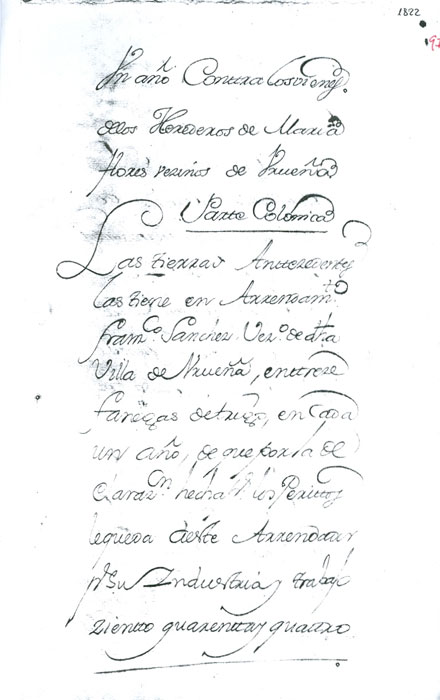 1822
97
Un año Contra Losvienes
delos Herederos de Maria
flores vezinos de Nrueña
Parte Colonica
Las tierras Antteredentes
las tiene en Arrendamto
franco Sanchez Vezo de dha
Villa de Nrueña, en treze
fanegas de trigo, en Cada
un año, de que por la de
Clarazon hecha los Peritos
lequeda a este Arrendatar
pr Su Industria y trabajo
ziento quarenta y quattro